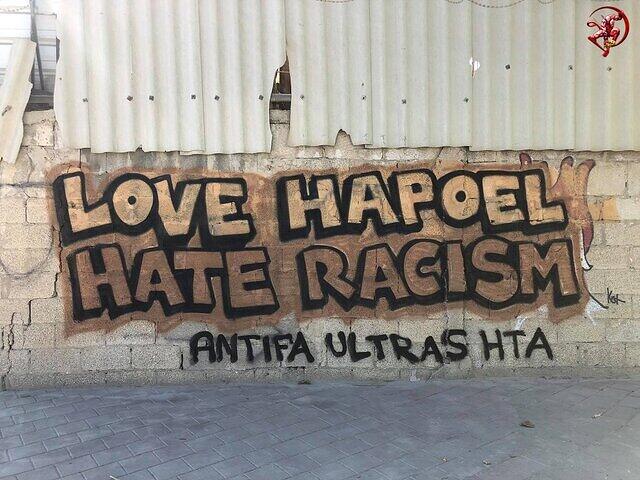 LOVE HAPOEL
HATE RACISM
ANTIFA ULTRA'S HTA